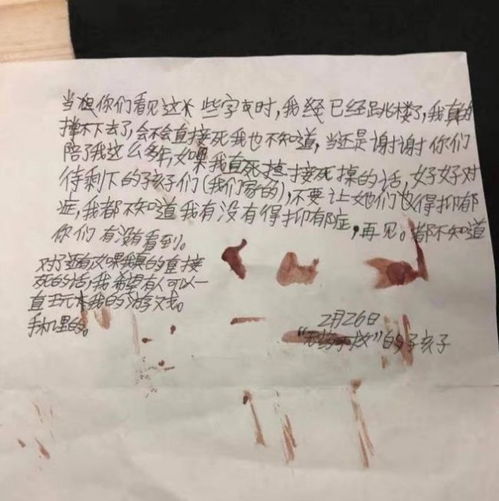 当你们看见这些字时,我经已经跳楼了,我真的
撑不下去了,会不会直接死我也不知道,当还是谢谢你们
陪了我这么多年,如果我真死直接死掉的话,好好对
待剩下的孩子们(我们家的),不要让她们也得抑郁
症,我都不知道我有没有得抑郁症,再见。都不知道
你们有没有看到。
对了还有如果我真的直接
死的话,我希望有人可以一
直玩我的游戏。
手机里的。
2月26日
"的孩子